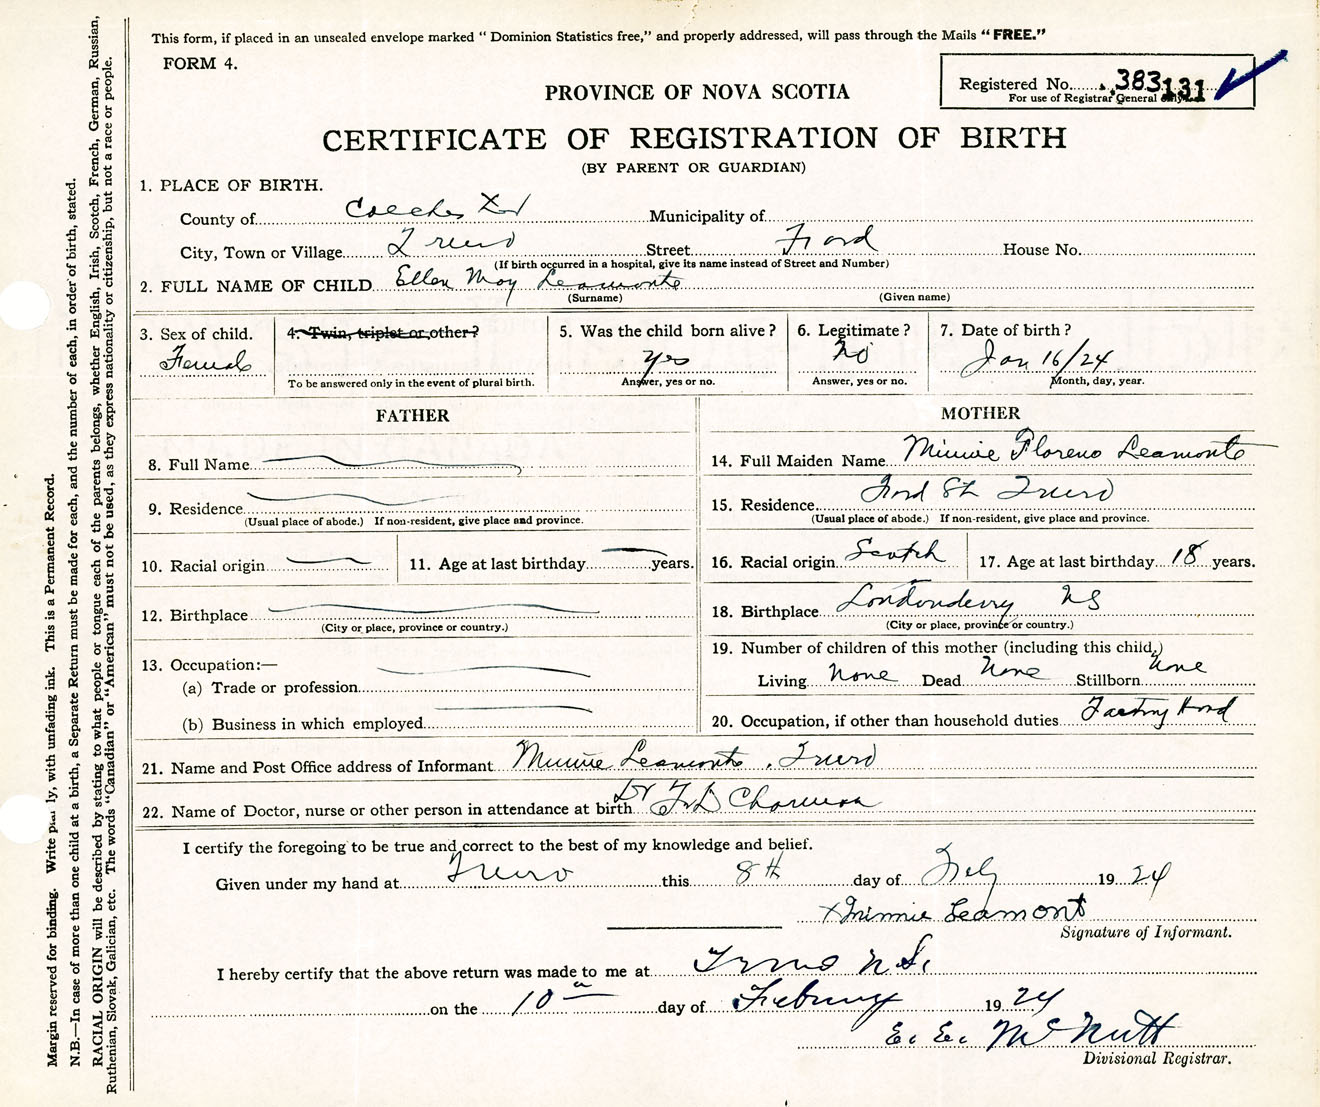 This form, if placed in an unsealed envelope marked “ Dominion Statistics free,” and properly addressed, will pass through the Mails “ FREE.”
FORM 4.
Registered No. 383131
For use of Registrar General only
PROVINCE OF NOVA SCOTIA
CERTIFICATE OF REGISTRATION OF BIRTH
(BY PARENT OR GUARDIAN)
1. PLACE OF BIRTH.
County of Colchester Municipality of
City, Town or Village Truro Street Ford House No.
(If birth occurred in a hospital, give its name instead of Street and Number)
2. FULL NAME OF CHILD Ellen May Leamonte
(Surname) (Given name)
3. Sex of child. Female
4. Twin, triplet or other?
To be answered only in the event of plural birth.
5. Was the child born alive? yes
Answer, yes or no.
6. Legitimate? no
Answer, yes or no.
7. Date of birth? Jan 16/24
Month, day, year.
FATHER
8. Full Name
9. Residence
(Usual place of abode.) If non-resident, give place and province.
10. Racial origin 11. Age at last birthday years.
12. Birthplace
(City or place, province or country.)
13. Occupation:—
(a) Trade or profession
(b) Business in which employed
MOTHER
14. Full Maiden Name Minnie Leamonte
15. Residence Ford St Truro
(Usual place of abode.) If non-resident, give place and province.
16. Racial origin Scotch 17. Age at last birthday 18 years.
18. Birthplace Londonderry NS
(City or place, province or country.)
19. Number of children of this mother (including this child.)
Living None Dead None Stillborn None
20. Occupation, if other than household duties Factory Hand
21. Name and Post Office address of Informant Minnie Leamonte, Truro
22. Name of Doctor, nurse or other person in attendance at birth Dr
I certify the foregoing to be true and correct to the best of my knowledge and belief.
Given under my hand at Truro this 8th day of 1924
x Minnie Leamont
Signature of Informant.
I hereby certify that the above return was made to me at Truro N.S.
on the 10th day of February 1924
E. E. McNutt
Divisional Registrar.
Margin reserved for binding. Write plainly, with unfading ink. This is a Permanent Record.
N.B.—In case of more than one child at a birth, a Separate Return must be made for each, and the number of each, in order of birth, stated.
RACIAL ORIGIN will be described by stating to what people or tongue each of the parents belongs, whether English, Irish, Scotch, French, German, Russian,
Ruthenian, Slovak, Galician, etc. The words “Canadian” or “American” must not be used, as they express nationality or citizenship, but not a race or people.